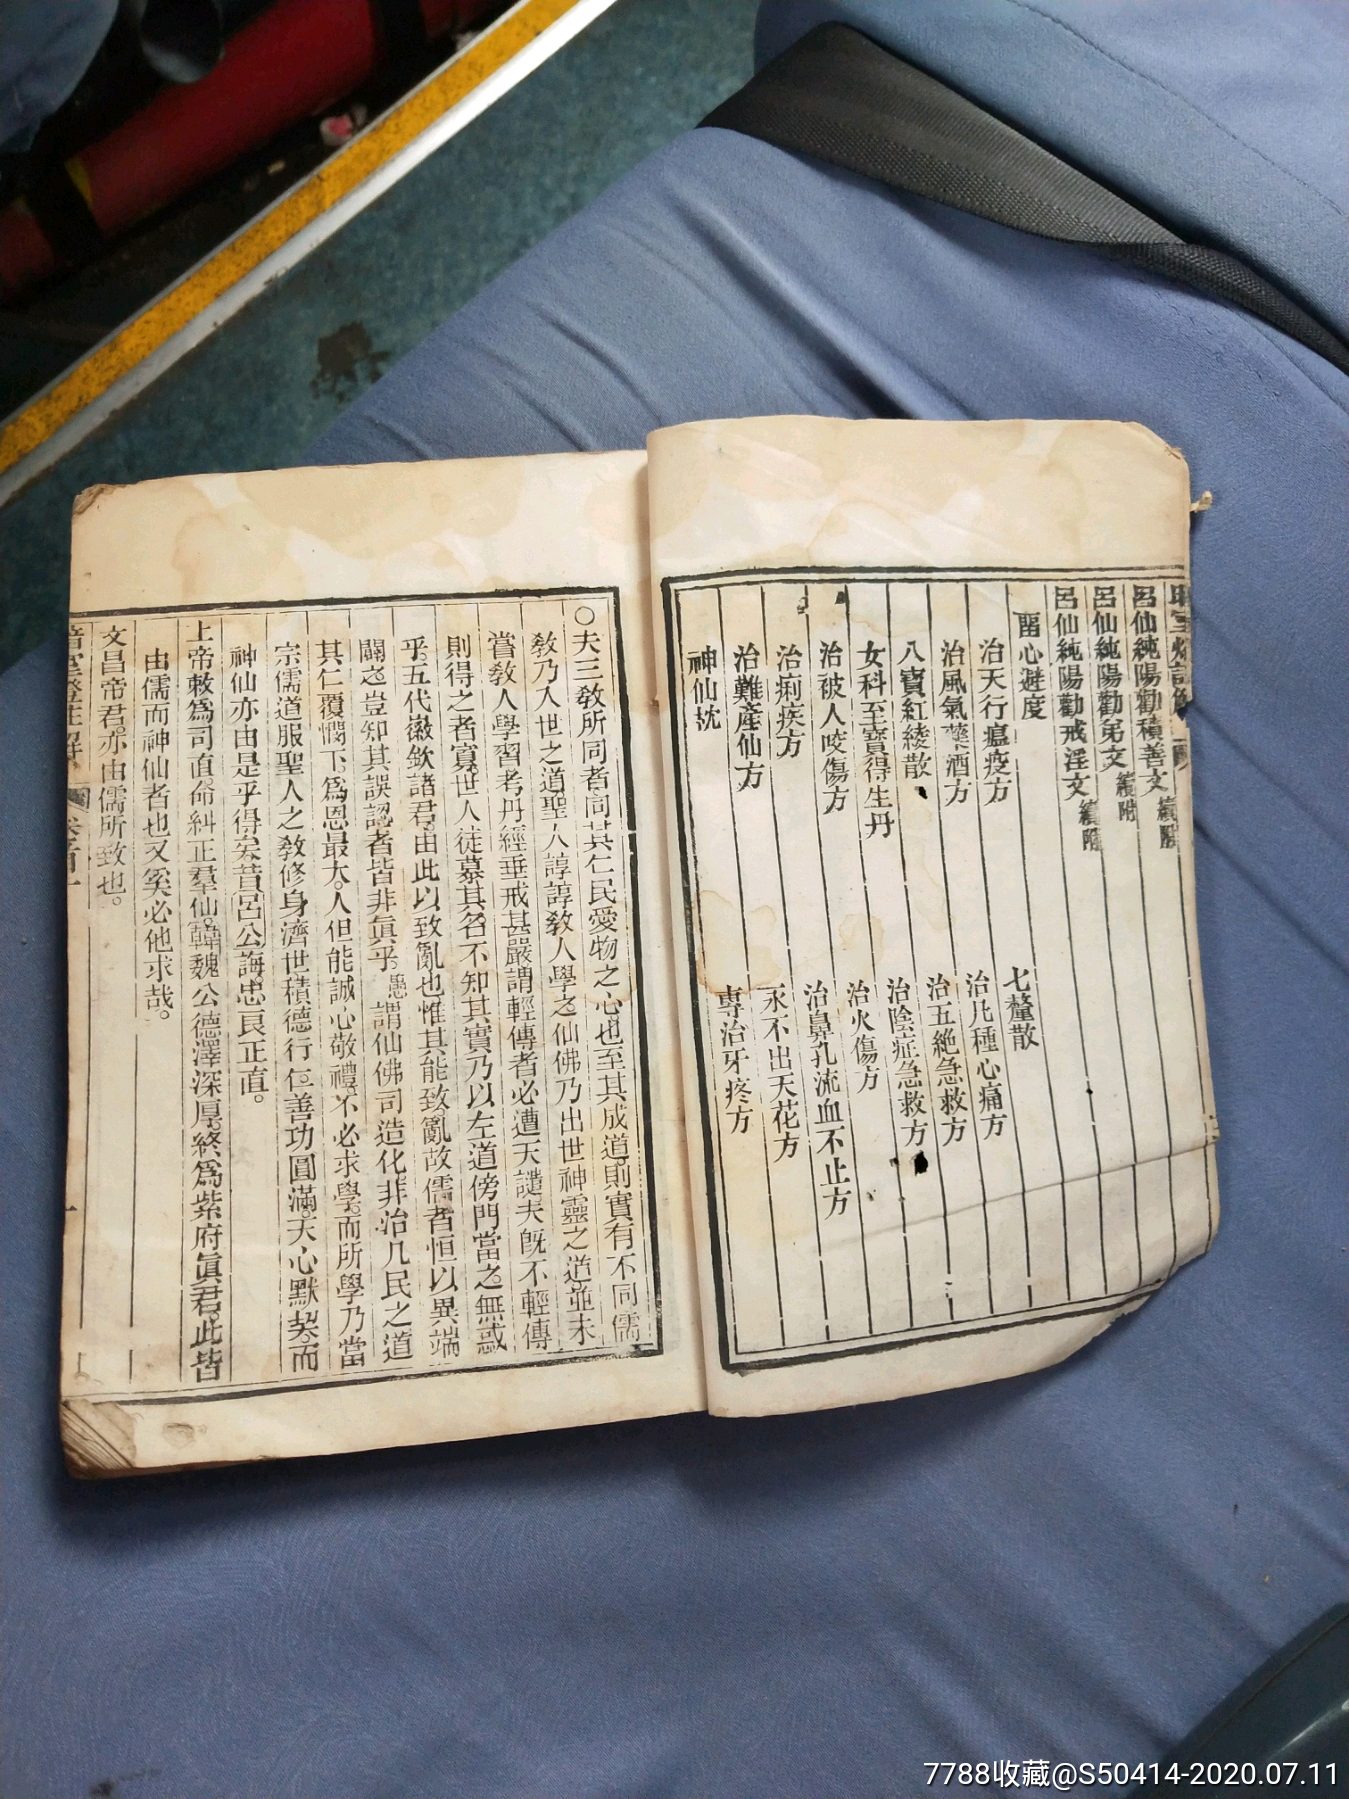 呂仙純陽勸積善文 續附
呂仙純陽勸弟文 續附
呂仙純陽勸戒淫文 續附
留心避度
七釐散
治天行瘟疫方
治九種心痛方
治風氣藥酒方
治五絕急救方
八寶紅綾散
治陰症急救方
女科至寶得生丹
治火傷方
治被人咬傷方
治鼻孔流血不止方
治痢疾方
永不出天花方
治難產仙方
專治牙疼方
神仙枕
○夫三敎所同者同其仁民愛物之心也至其成道則實有不同儒
敎乃入世之道聖人諄諄敎人學之仙佛乃出世神靈之道並未
嘗敎人學習考丹經垂戒甚嚴謂輕傳者必遭天譴夫旣不輕傳
則得之者寡世人徒慕其名不知其實乃以左道傍門當之無惑
乎五代徽欽諸君由此以致亂也惟其能致亂故儒者恒以異端
闢之豈知其誤認者皆非眞乎愚謂仙佛司造化非治凡民之道
其仁覆憫下爲恩最大人但能誠心敬禮不必求學而所學乃當
宗儒道服聖人之敎修身濟世積德行仁善功圓滿天心默契而
神仙亦由是乎得矣昔呂公誨忠艮正直。
上帝敕爲司直命糾正羣仙韓魏公德澤深厚終爲紫府眞君此皆
由儒而神仙者也又奚必他求哉。
文昌帝君亦由儒所致也。
7788收藏@S50414-2020.07.11